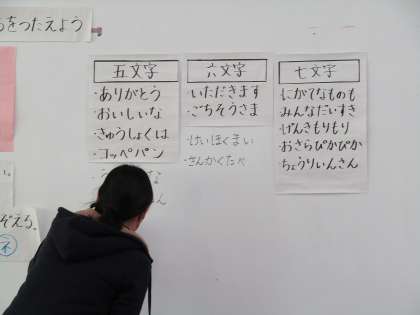 をつたえよう
五文字
・ありがとう
・おいしいな
・きゅうしょくは
・コッペパン
六文字
・いただきます
・ごちそうさま
・けいほくまい
・さんかくたべ
七文字
・にがてなものも
・みんなだいすき
・げんきもりもり
・おさらぴかぴか
・ちょうりいんさん